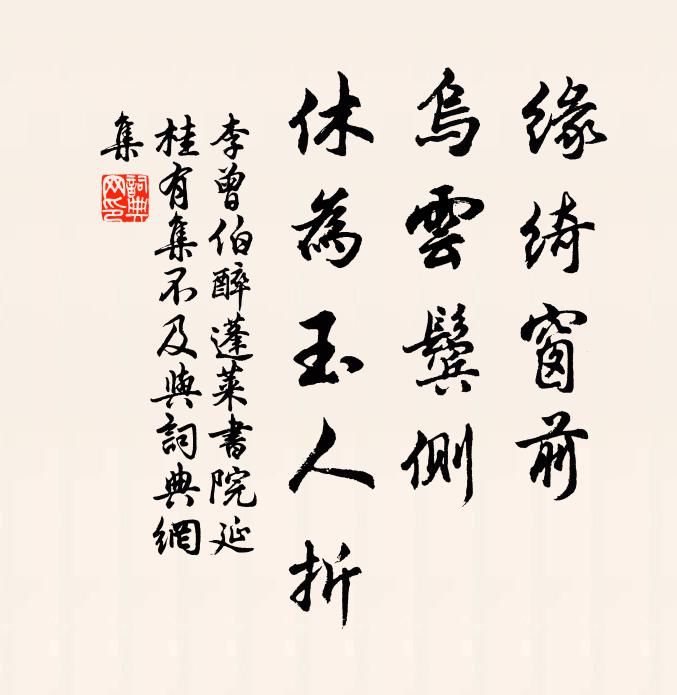 緣綺窗前
烏雲鬢側
休為玉人折
李曾伯醉蓬萊書院延
桂有集不及與詞典網
集
詞典
网印